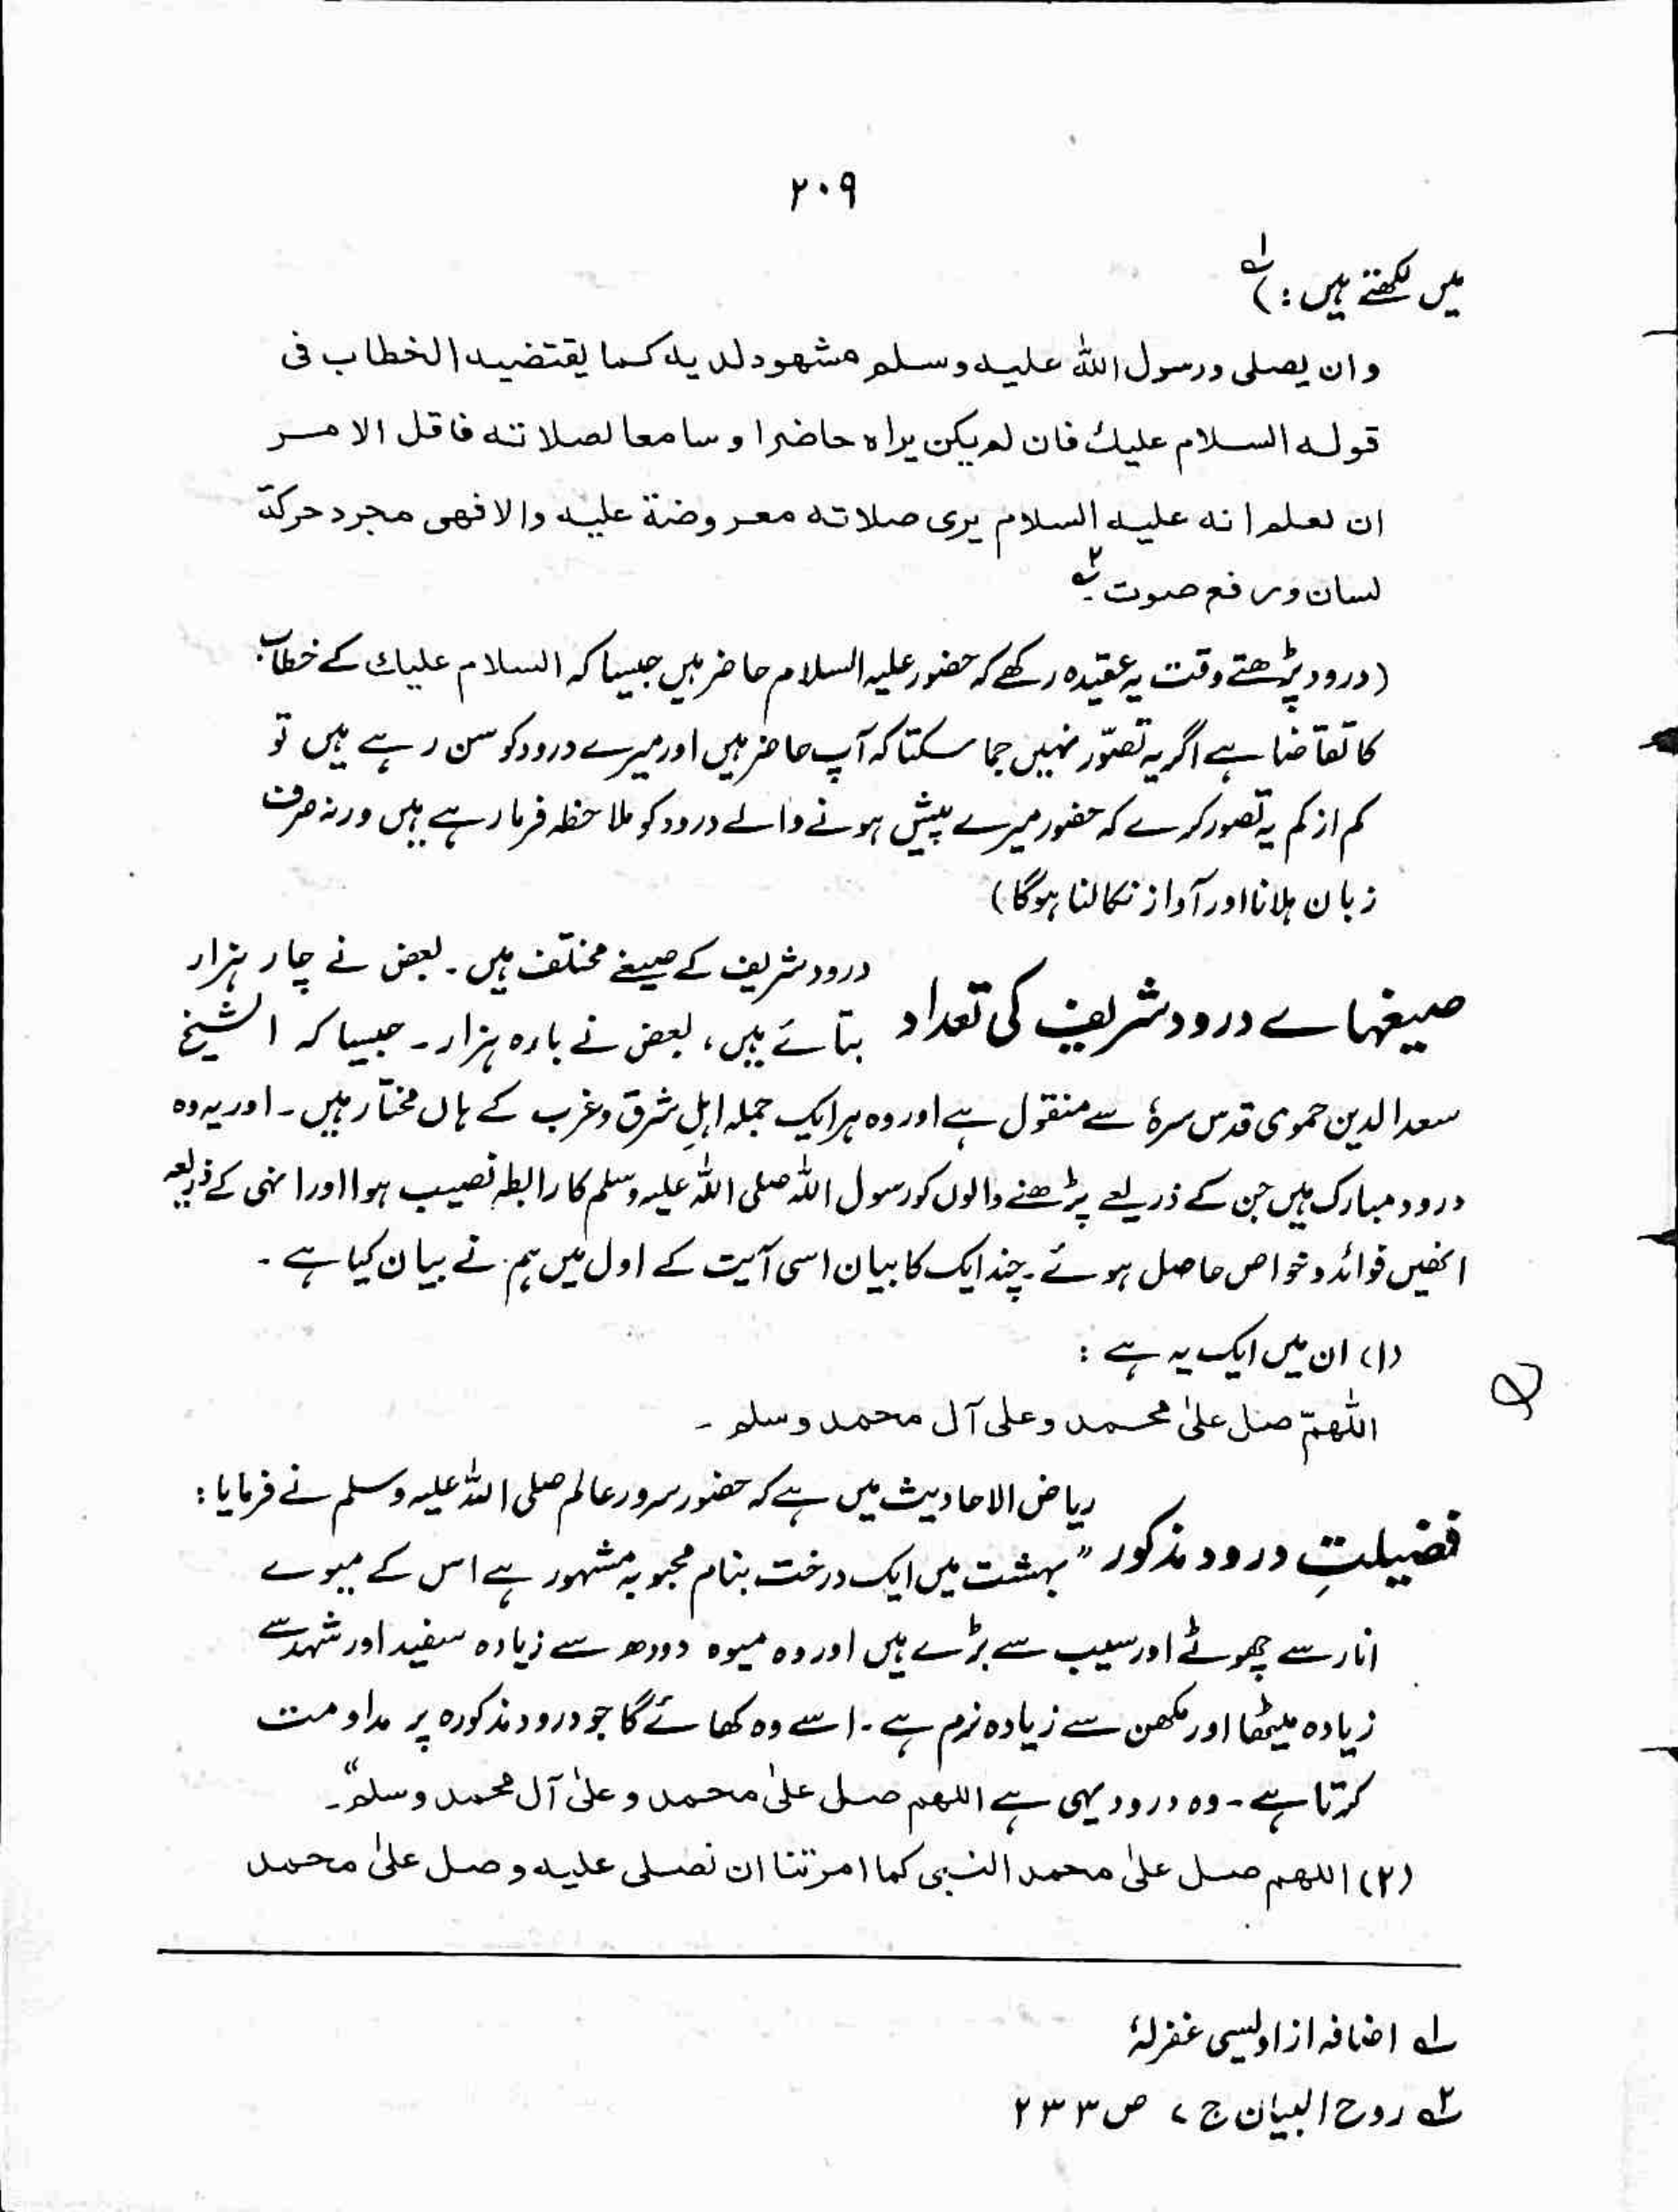 ۲۰۹
میں لکھتے ہیں :) ؎۱
وان یصلی ورسول اللہ علیہ وسلم مشھود لدیہ کما یقتضیہ الخطاب فی
قولہ السلام علیک فان لم یکن یراہ حاضرا و سامعا لصلاتہ فاقل الامر
ان لعلم انہ علیہ السلام یری صلاتہ معروضۃ علیہ والا فھی مجرد حرکۃ
لسان ورفع صوت ؎۲
(درود پڑھتے وقت یہ عقیدہ رکھے کہ حضور علیہ السلام حاضر ہیں جیسا کہ السلام علیک کے خطاب
کا تقاضا ہے اگر یہ تصوّر نہیں جما سکتا کہ آپ حاضر ہیں اور میرے درود کو سن رہے ہیں تو
کم از کم یہ تصور کرے کہ حضور میرے پیش ہونے والے درود کو ملاحظہ فرما رہے ہیں ورنہ صرف
زبان ہلانا اور آواز نکالنا ہوگا)
صیغہاے درود شریف کی تعداد درود شریف کے صیغے مختلف ہیں۔ بعض نے چار ہزار
بتائے ہیں، بعض نے بارہ ہزار۔ جیسا کہ الشیخ
سعد الدین حموی قدس سرہٗ سے منقول ہے اور وہ ہر ایک جملہ اہلِ شرق و غرب کے ہاں مختار ہیں۔ اور یہ وہ
درود مبارک ہیں جن کے ذریعے پڑھنے والوں کو رسول اللہ صلی اللہ علیہ وسلم کا رابطہ نصیب ہوا اور انہی کے ذریعہ
انھیں فوائد و خواص حاصل ہوئے۔ چند ایک کا بیان اسی آیت کے اول میں ہم نے بیان کیا ہے۔
(۱) ان میں ایک یہ ہے :
اللھمّ صل علیٰ محمد وعلی آل محمد وسلم۔
فضیلتِ درود مذکور ریاض الاحادیث میں ہے کہ حضور سرور عالم صلی اللہ علیہ وسلم نے فرمایا :
"بہشت میں ایک درخت بنام محبوبہ مشہور ہے اس کے میوے
انار سے چھوٹے اور سیب سے بڑے ہیں اور وہ میوہ دودھ سے زیادہ سفید اور شہد سے
زیادہ میٹھا اور مکھن سے زیادہ نرم ہے۔ اسے وہ کھائے گا جو درود مذکورہ پر مداومت
کرتا ہے۔ وہ درود یہی ہے اللھم صل علیٰ محمد و علیٰ آل محمد وسلم"۔
(۲) اللھم صل علیٰ محمد النبی کما امرتنا ان نصلی علیہ وصل علیٰ محمد
؎۱ اضافہ از اویسی غفرلہٗ
؎۲ روح البیان ج ۷ ص ۲۳۳